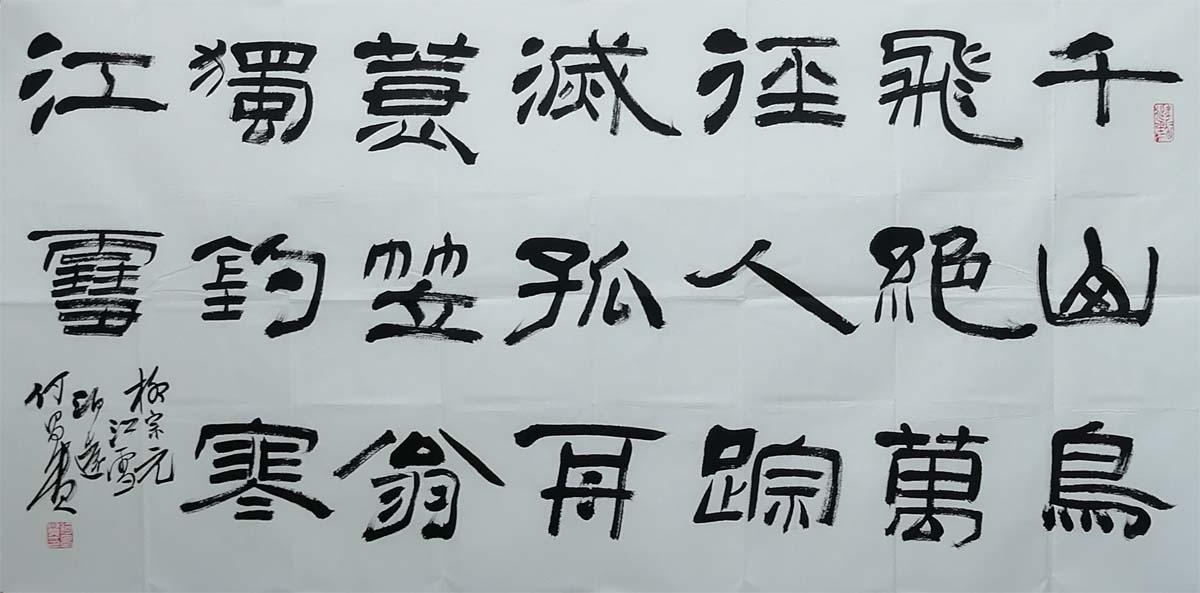 千山鳥
飛絕萬
徑人踪
滅孤舟
蓑笠翁
獨釣寒
江雪
柳宗元
江雪
何